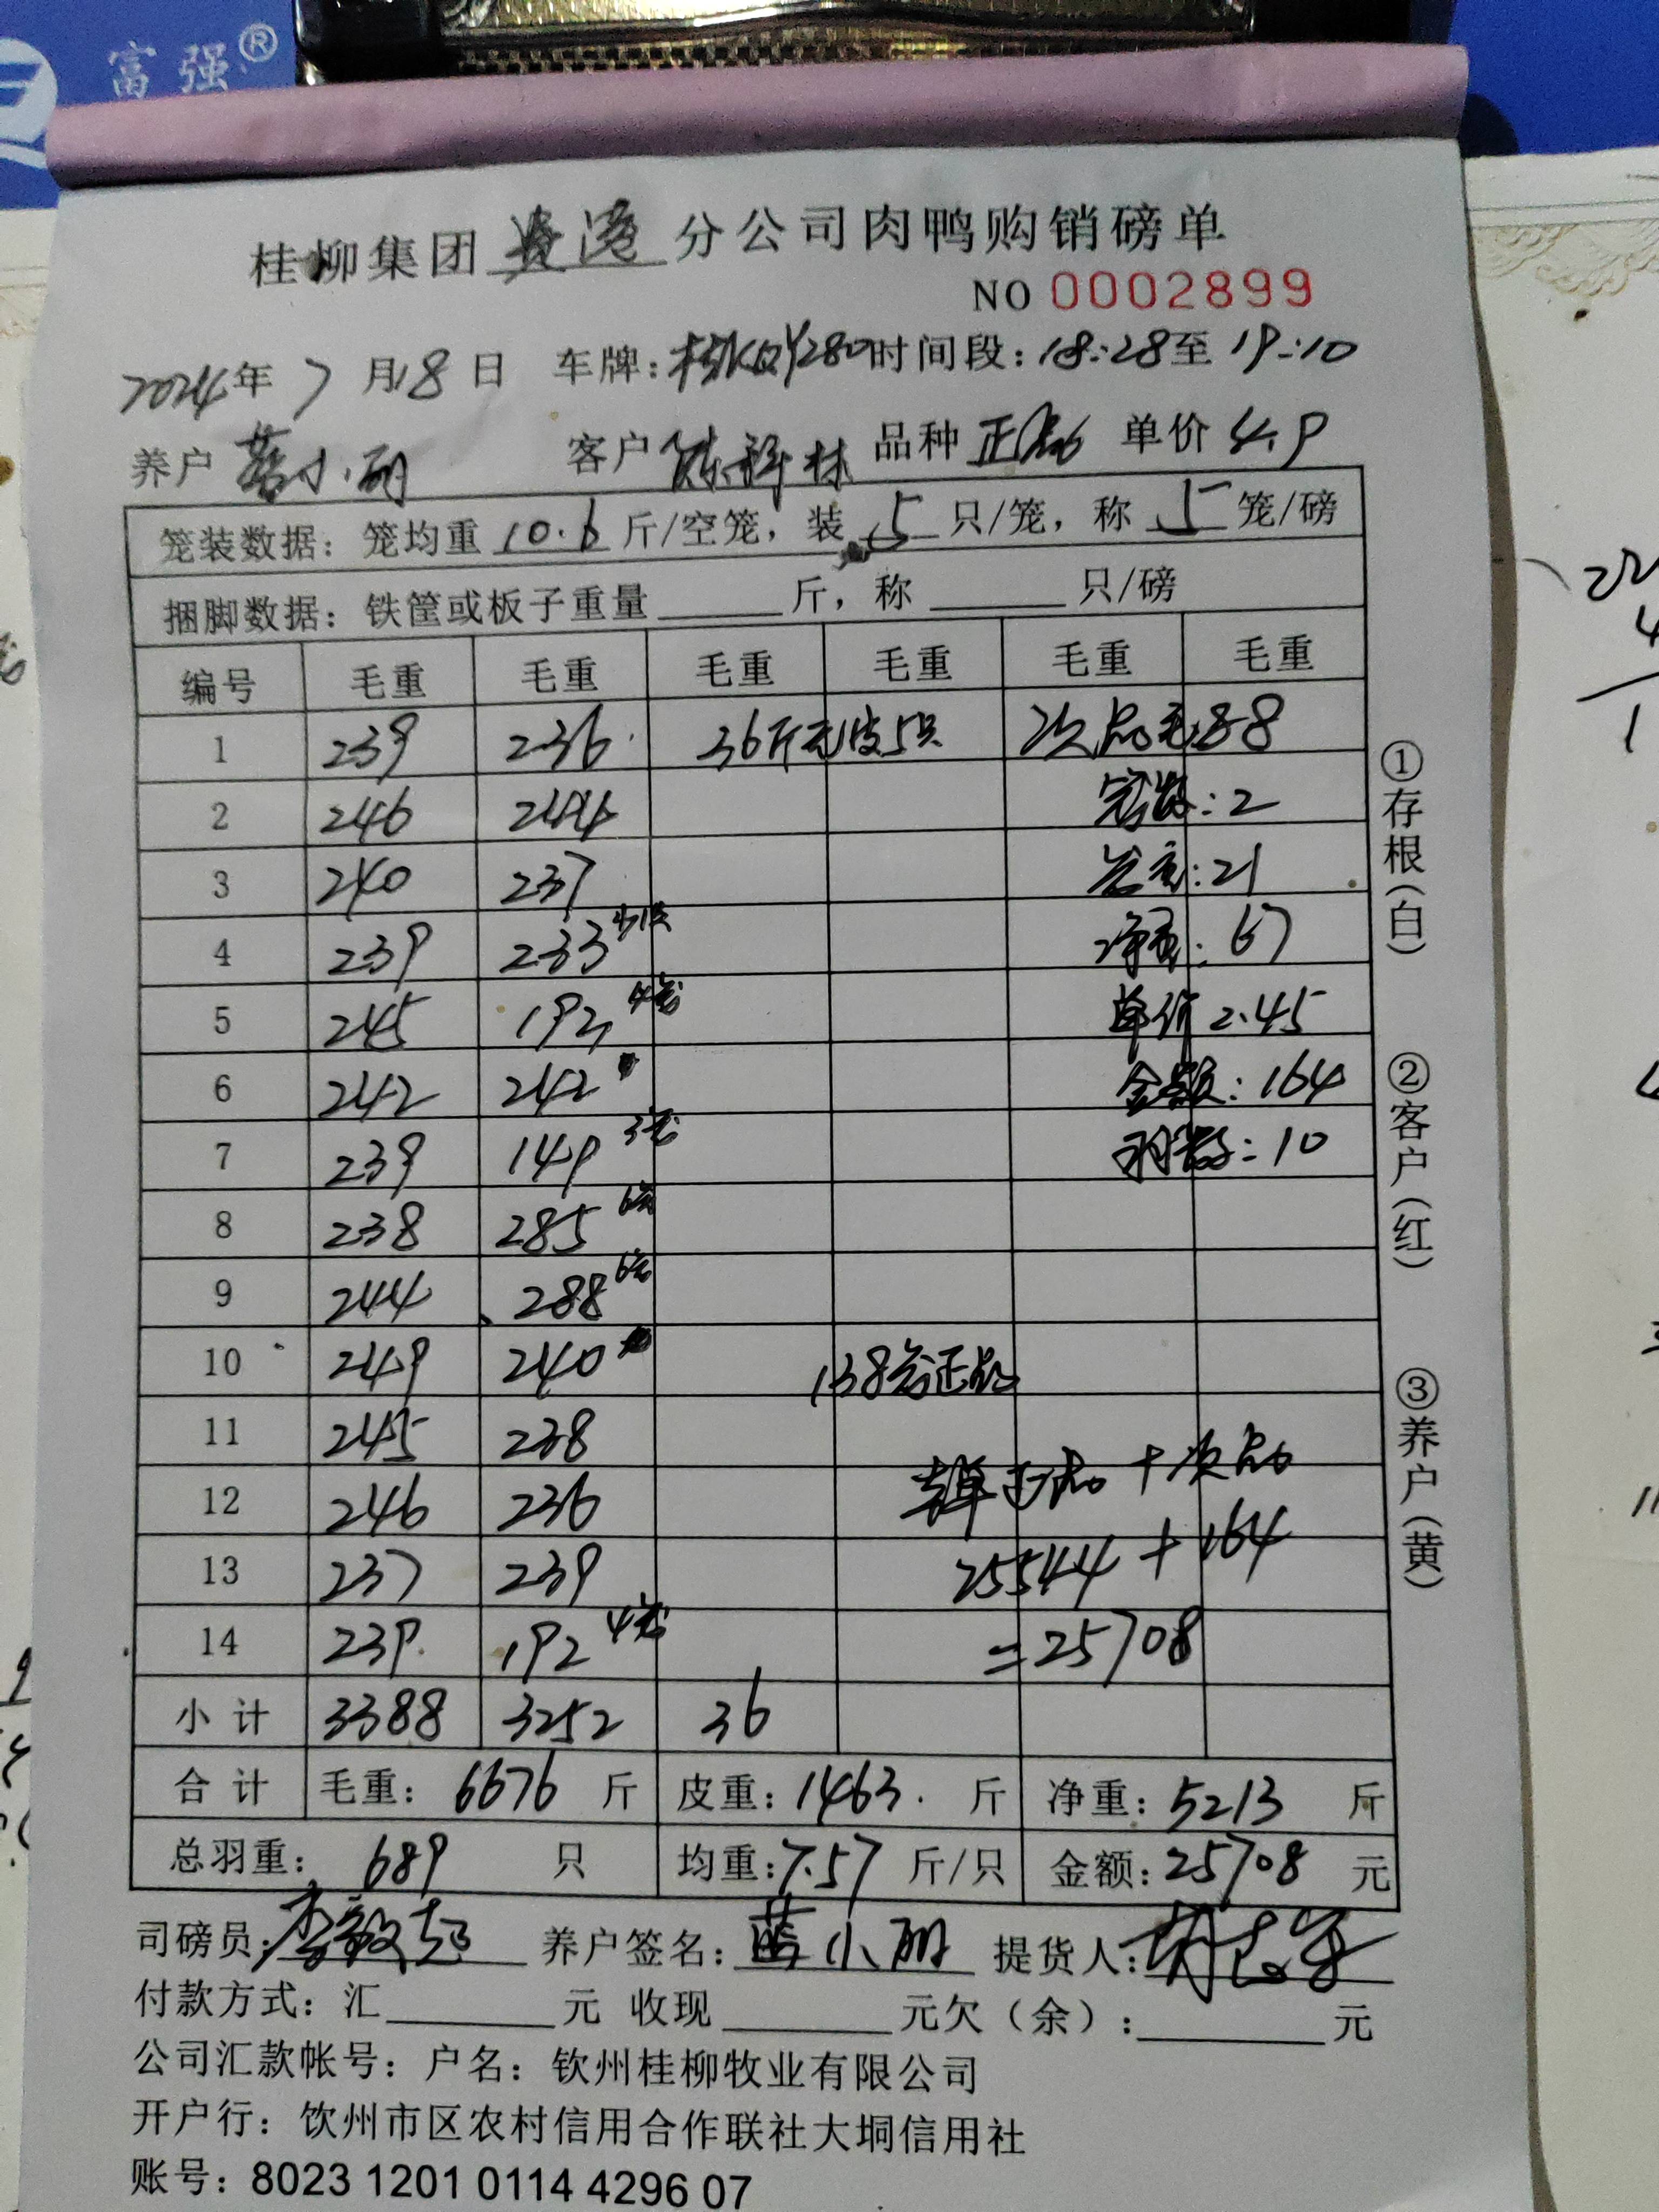 富强®
桂柳集团贵港分公司肉鸭购销磅单
NO 0002899
2024年 7 月18 日 车牌: 时间段:18:28至 19:10
养户 蓝小丽 客户 陈 林 品种 正品 单价 4.9
笼装数据:笼均重 10.6 斤/空笼,装 5 只/笼,称 5 笼/磅
捆脚数据:铁筐或板子重量 斤,称 只/磅
编号 毛重 毛重 毛重 毛重 毛重 毛重
1 239 236 36斤无皮5只 次品毛:88
2 246 244 笼数:2
3 240 237 笼重:21
4 239 233 少1只 净重:67
5 245 192 4笼 单价 2.45
6 242 242 金额:164
7 239 149 3笼 羽数:10
8 238 285 6笼
9 244 288 6笼
10 249 240 138笼正品
11 245 238
12 246 236 正品+次品
13 237 239 25544+164
14 239 192 4笼 =25708
小计 3388 3252 36
合计 毛重: 6676 斤 皮重:1463. 斤 净重: 5213 斤
总羽重: 689 只 均重:7.57 斤/只 金额:25708 元
司磅员: 养户签名:蓝小丽 提货人:
付款方式:汇 元 收现 元欠(余): 元
公司汇款帐号:户名:钦州桂柳牧业有限公司
开户行:饮州市区农村信用合作联社大垌信用社
账号:8023 1201 0114 4296 07
①存根(白)
②客户(红)
③养户(黄)